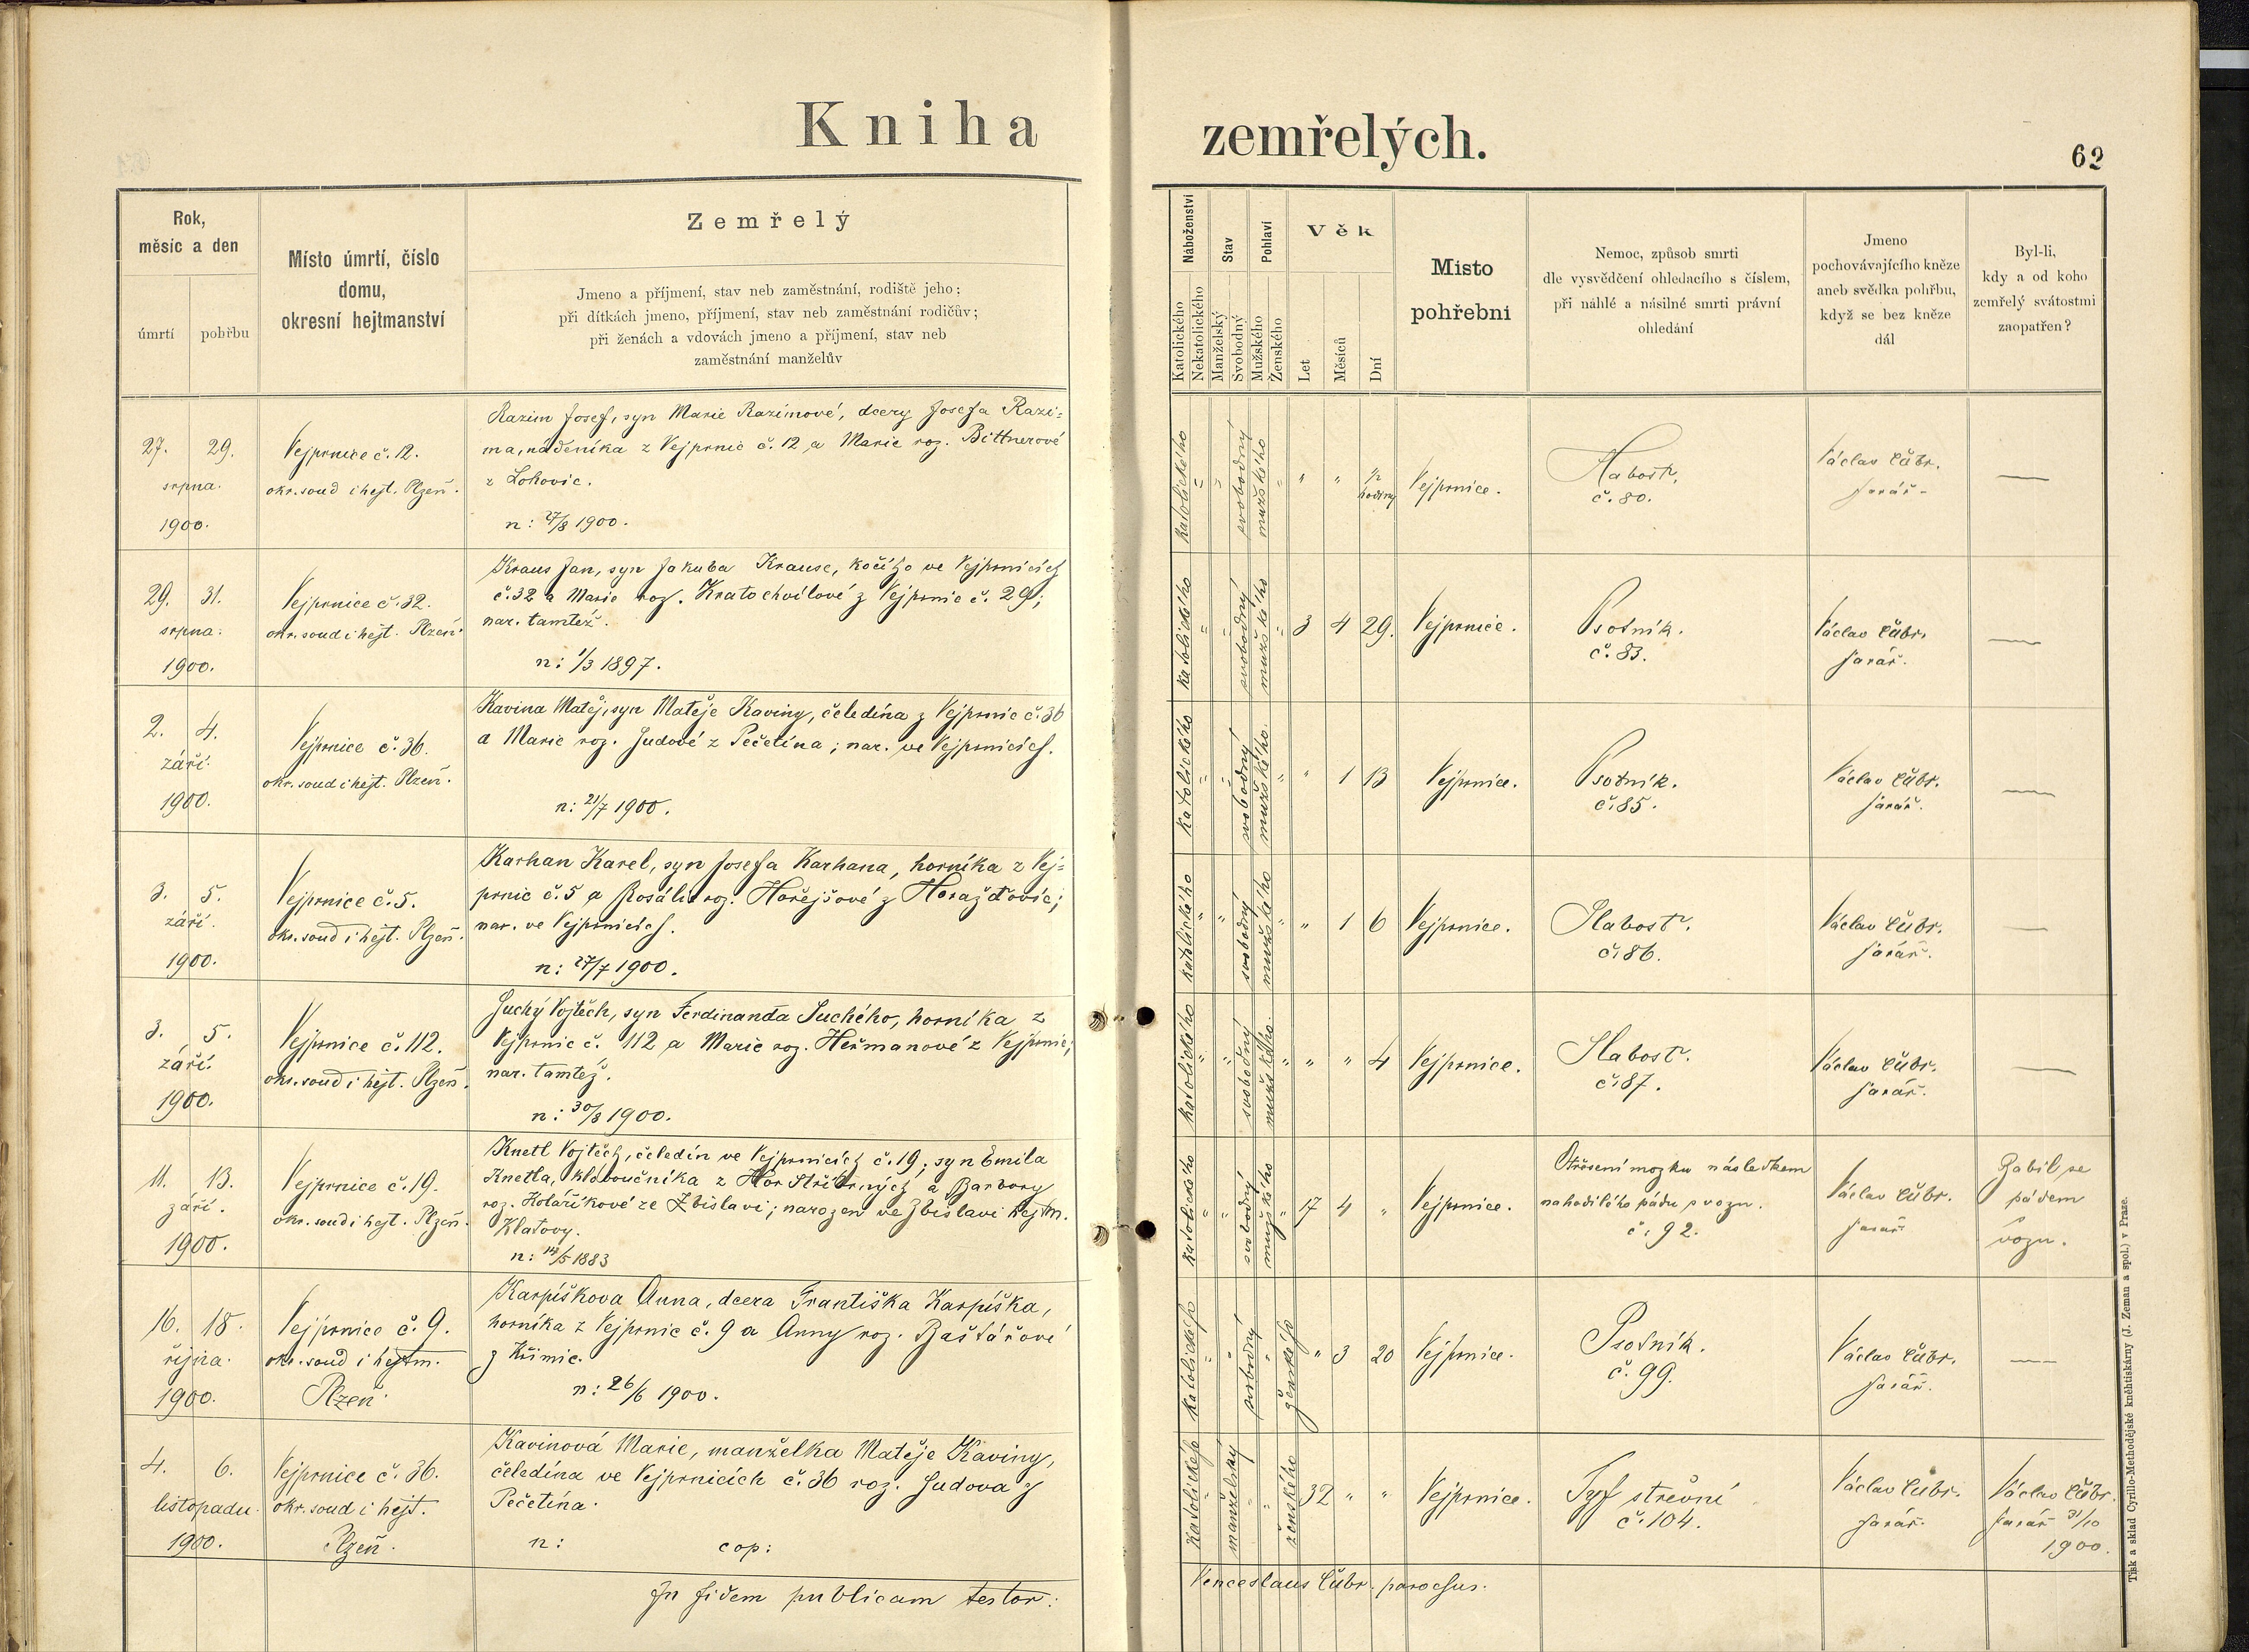 Kniha
zemřelých.
62
Rok,
měsíc a den
úmrtí
pohřbu
Místo úmrtí, číslo
domu,
okresní hejtmanství
Zemřelý
Jmeno a příjmení, stav neb zaměstnání, rodiště jeho;
při dítkách jmeno, příjmení, stav neb zaměstnání rodičův;
při ženách a vdovách jmeno a příjmení, stav neb
zaměstnání manželův
Náboženství
Katolického
Nekatolického
Stav
Manželský
Svobodný
Pohlaví
Mužského
Ženského
Věk
Let
Měsíců
Dní
Misto
pohřebni
Nemoc, způsob smrti
dle vysvědčení ohledacího s číslem,
při náhlé a násilné smrti právní
ohledání
Jmeno
pochovávajícího kněze
aneb svědka pohřbu,
když se bez kněze
dál
Byl-li,
kdy a od koho
zemřelý svátostmi
zaopatřen?
27. 29.
srpna.
1900.
Vejprnice č. 12.
okr. soud i hejt. Plzeň.
Razim Josef, syn Marie Razimové, dcery Josefa Razi-
ma, nádeníka z Vejprnic č. 12 a Marie roz. Bittnerové
z Lohovic.
n: 27/8 1900.
katolického " " svobodný mužského " " " ½ hodiny
Vejprnice.
Slabost.
č. 80.
Václav Čubr.
farář.
—
29. 31.
srpna.
1900.
Vejprnice č. 32.
okr. soud i hejt. Plzeň.
Kraus Jan, syn Jakuba Krause, kočího ve Vejprnicích
č. 32 a Marie roz. Kratochvilové z Vejprnic č. 29;
nar. tamtéž.
n: 1/3 1897.
katolického " " svobodný mužského " 3 4 29.
Vejprnice.
Psotník.
č. 83.
Václav Čubr.
farář.
—
2. 4.
září.
1900.
Vejprnice č. 36.
okr. soud i hejt. Plzeň.
Kavina Matěj, syn Matěje Kaviny, čeledína z Vejprnic č. 36
a Marie roz. Judové z Pečetína; nar. ve Vejprnicích.
n: 21/7 1900.
katolického " " svobodný mužského " " 1 13
Vejprnice.
Psotník.
č. 85.
Václav Čubr.
farář.
—
3. 5.
září.
1900.
Vejprnice č. 5.
okr. soud i hejt. Plzeň.
Karhan Karel, syn Josefa Karhana, horníka z Vej-
prnic č. 5 a Rosálie roz. Hořejšové z Horažďovic;
nar. ve Vejprnicích.
n: 27/7 1900.
katolického " " svobodný mužského " " 1 6
Vejprnice.
Slabost.
č. 86.
Václav Čubr.
farář.
—
3. 5.
září.
1900.
Vejprnice č. 112.
okr. soud i hejt. Plzeň.
Suchý Vojtěch, syn Ferdinanda Suchého, horníka z
Vejprnic č. 112 a Marie roz. Heřmanové z Vejprnic;
nar. tamtéž.
n: 30/8 1900.
katolického " " svobodný mužského " " " 4
Vejprnice.
Slabost.
č. 87.
Václav Čubr.
farář.
—
11. 13.
září.
1900.
Vejprnice č. 19.
okr. soud i hejt. Plzeň.
Knetl Vojtěch, čeledín ve Vejprnicích č. 19; syn Emila
Knetla, kloboučníka z Hor Stříbrných a Barbory
roz. Kolaříkové ze Zbislavi; narozen ve Zbislavi hejtm.
Klatovy.
n: 14/5 1883
katolického " " svobodný mužského " 17 4 "
Vejprnice.
Otřesení mozku následkem
nahodilého pádu s vozu.
č. 92.
Václav Čubr.
farář
Zabil se
pádem
vozu.
16. 18.
října.
1900.
Vejprnice č. 9.
okr. soud i hejtm.
Plzeň.
Karpíškova Anna, dcera Františka Karpíška,
horníka z Vejprnic č. 9 a Anny roz. Baštářové
z Křimic.
n: 26/6 1900.
katolického " " svobodný " ženského " 3 20
Vejprnice.
Psotník.
č. 99.
Václav Čubr.
farář.
—
4. 6.
listopadu.
1900.
Vejprnice č. 36.
okr. soud i hejt.
Plzeň.
Kavinová Marie, manželka Matěje Kaviny,
čeledína ve Vejprnicích č. 36 roz. Judova z
Pečetína.
n: cop:
katolického " manželský " " ženského 32 " "
Vejprnice.
Tyf střevní
č. 104.
Václav Čubr.
farář.
Václav Čubr.
farář 31/10
1900.
In fidem publicam testor:
Venceslaus Čubr. parochus.
Tisk a sklad Cyrillo-Methodějské kněhtiskárny (J. Zeman a spol.) v Praze.